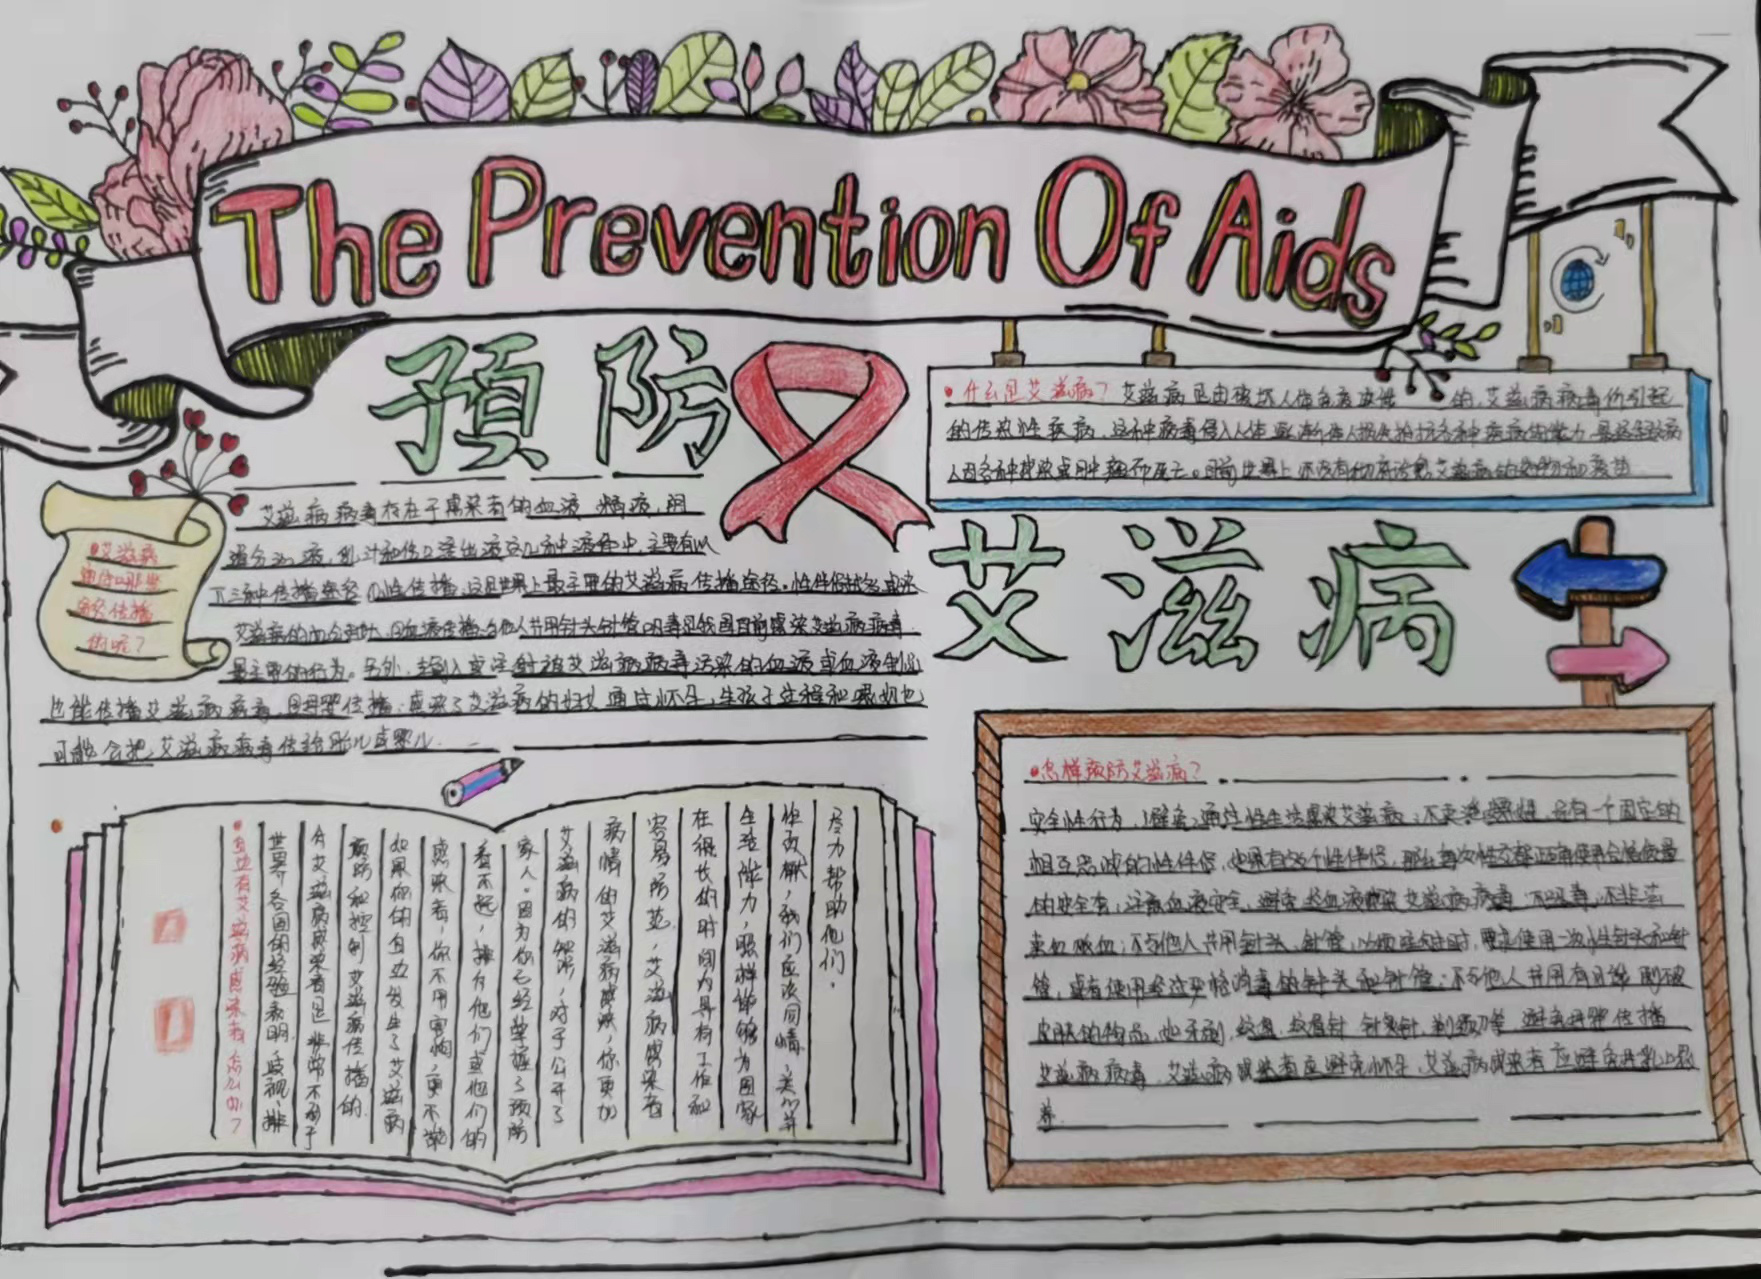 The Prevention Of Aids
预防
艾滋病
•什么是艾滋病？艾滋病是由破坏人体免疫 的,艾滋病病毒 引起
的传染性疾病,这种病毒侵入人体 抵抗各种疾病的能力
人因各种 死亡。目前世界上还没有 艾滋病的药物和疫苗
•艾滋病
途径传播
的呢？
艾滋病病毒存在于感染者的血液 精液,阴
道分泌液,乳汁和伤口渗出液 几种液体中,主要有以
下三种传播途径 ①性传播,这是世界上最主要的艾滋病传播途径。性伴侣越多感染
艾滋病的 血液传播 与他人共用针头针管吸毒是我国目前感染艾滋病病毒
最主要的行为。另外,输入或注射被艾滋病病毒污染的血液或血液制品
也能传播艾滋病病毒, 母婴传播:感染了艾滋病的妇女通过怀孕,生孩子过程和喂奶也
可能会把艾滋病病毒传给胎儿或婴儿.
•怎样预防艾滋病？
安全性行为, 避免通过性生活感染艾滋病 有一个固定的
相互忠诚的性伴侣, 如果有 个性伴侣,那么每次性交都 使用合格质量
的安全套;注意血液安全,避免 血液感染艾滋病病毒 不吸毒,不非法
卖血 血;不与他人共用针头、针管, 必须 时,要 使用一次性针头和针
管,或者使用经过严格消毒的针头和针管;不与他人共用有可能刺破
皮肤的物品,如牙刷, 纹眉针 针灸针,剃须刀等 避免母婴传播
艾滋病病毒,艾滋病感染者应避免怀孕,艾滋病感染者应避免母乳喂
养.
•身边有艾滋病感染者怎么办？
世界各国的经验表明,歧视、排
斥艾滋病感染者是非常不利于
预防和控制艾滋病传播的.
如果你的身边发生了艾滋病
感染者,你不用害怕,更不能
看不起,排斥他们或他们的
家人。因为你已经掌握了预防
艾滋病的知识,对于公开了
病情的艾滋病感染,你更加
容易防范,艾滋病感染者
在很长的时间内具有工作和
生活能力,照样能够为国家
作贡献,我们应该同情、关心并
尽力帮助他们.